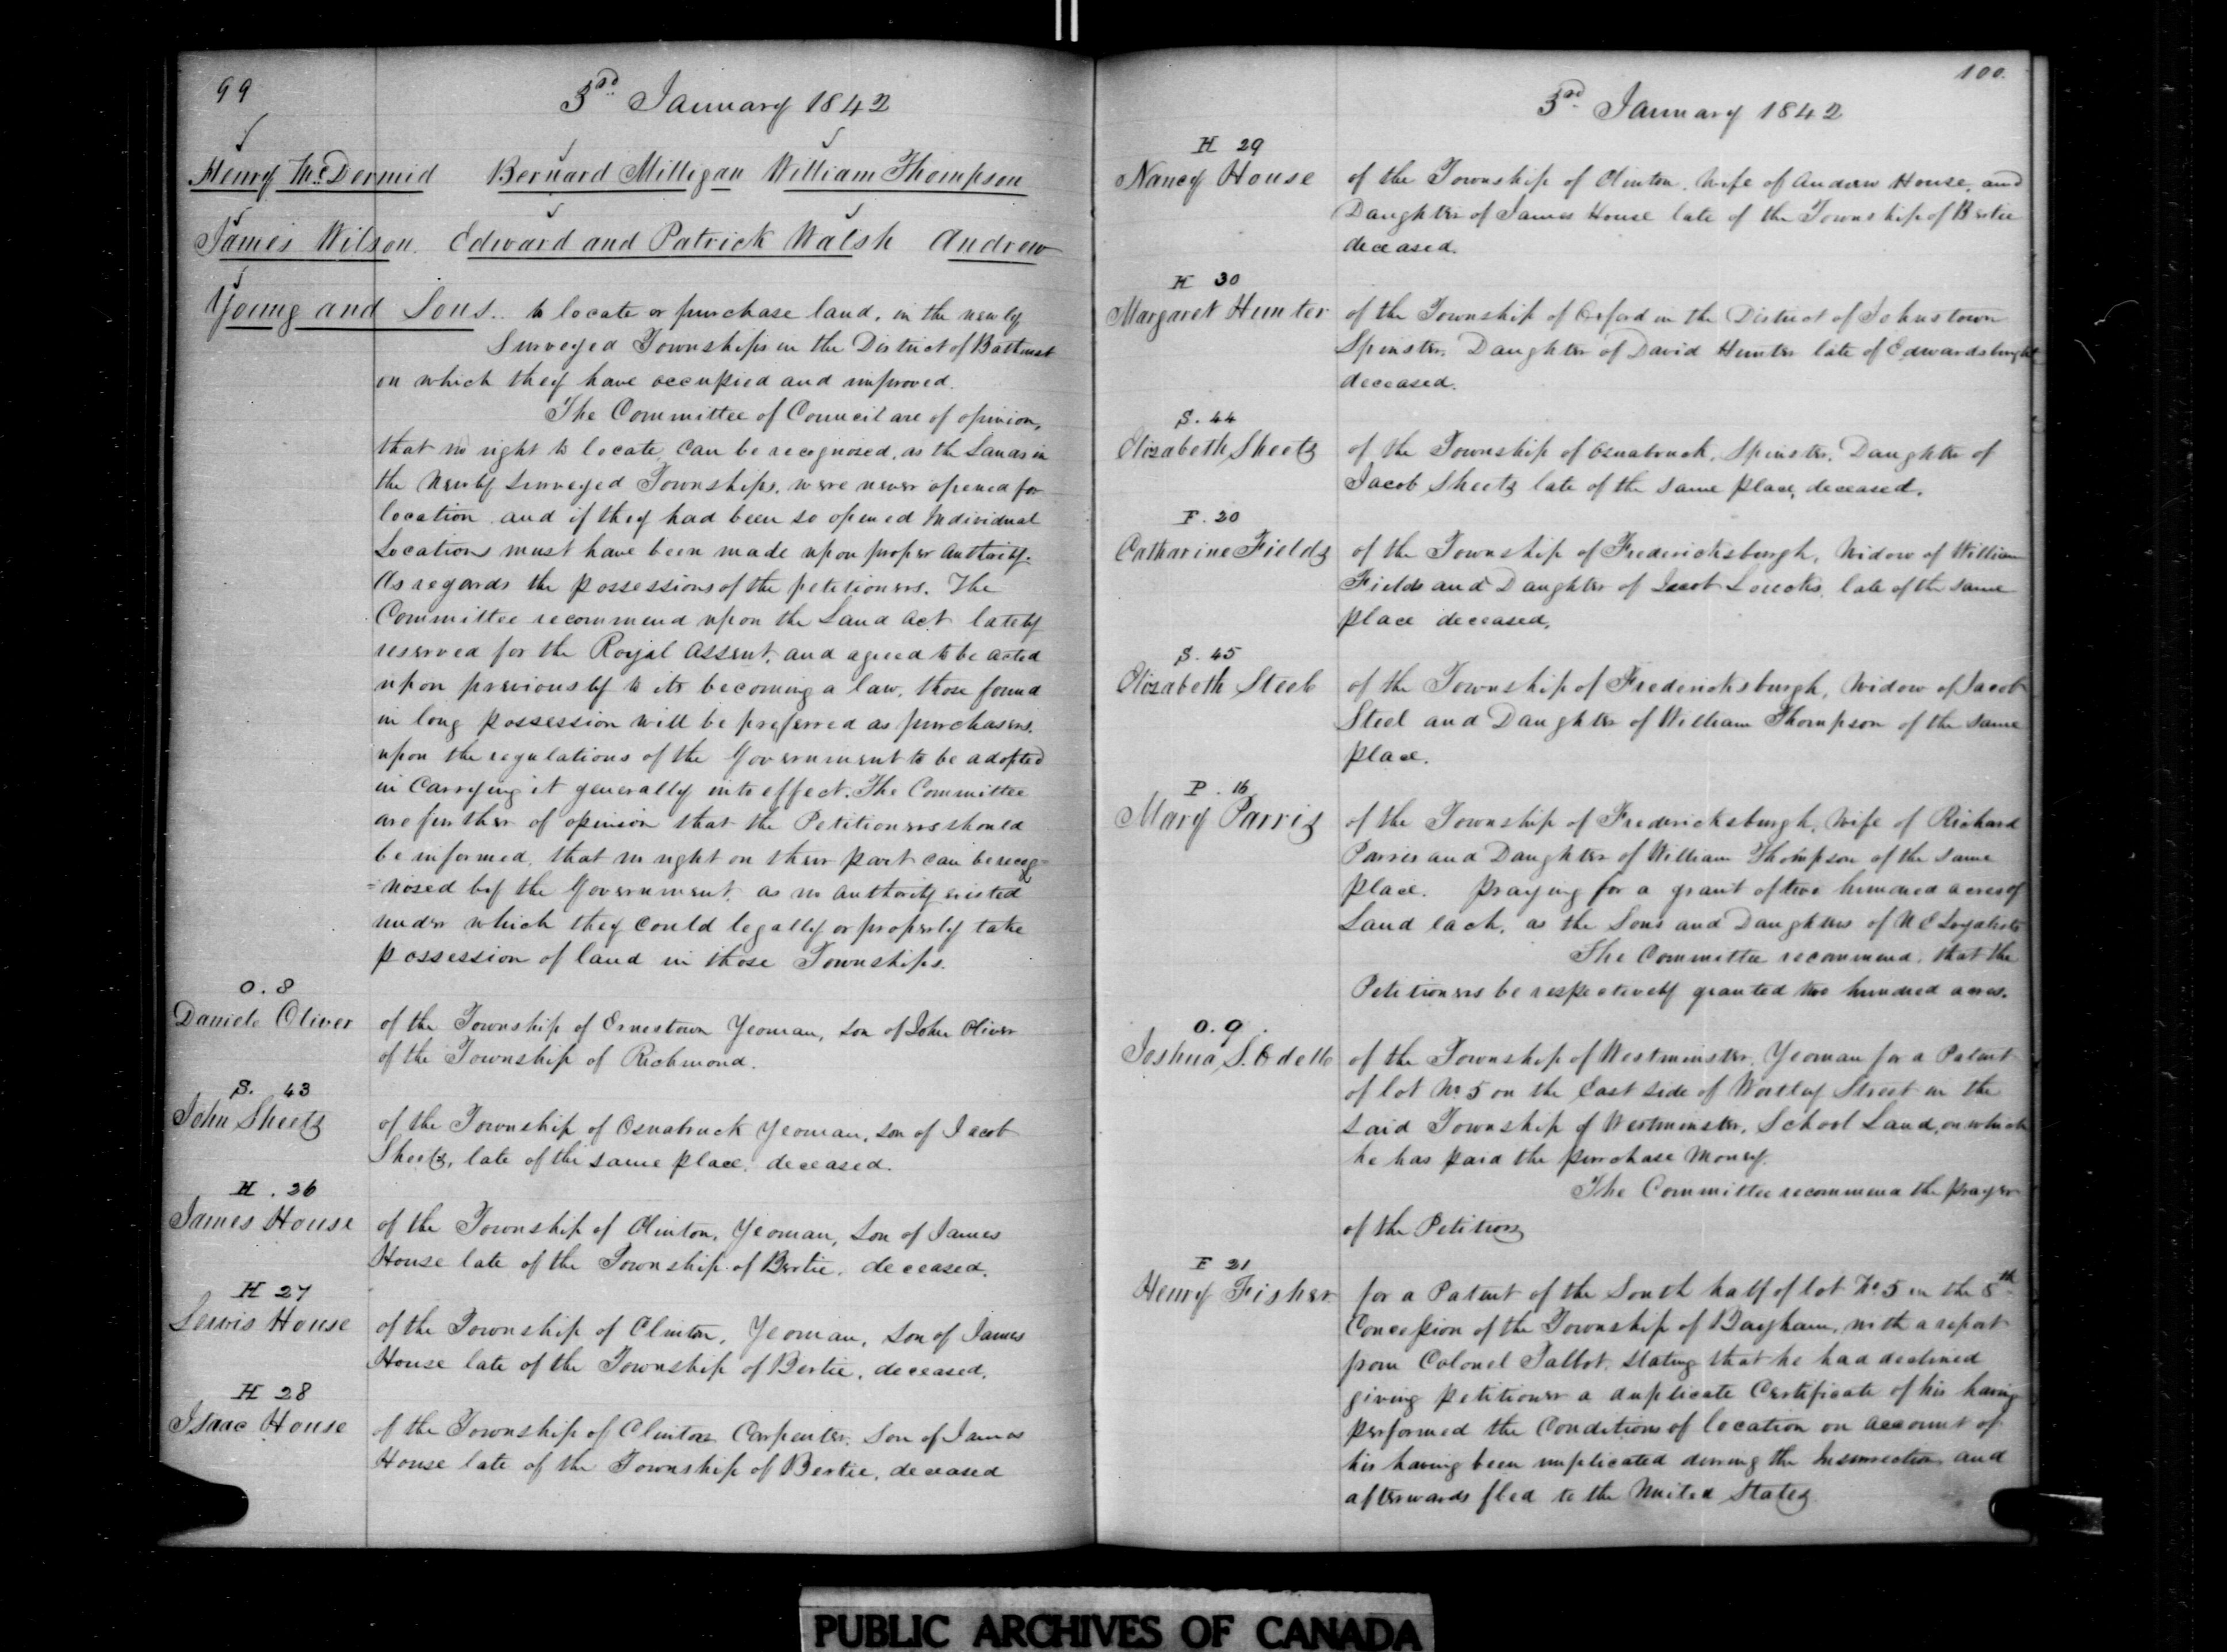 99
3rd January 1842
Henry McDermid Bernard Milligan William Thompson
James Wilson. Edward and Patrick Walsh Andrew
Young and Sons.. to locate or purchase land, in the newly
Surveyed Townships in the District of Bathurst
on which they have occupied and improved.
The Committee of Council are of opinion,
that no right to locate can be recognised, as the Lands in
the Newly Surveyed Townships, were never opened for
location and if they had been so opened Individual
Locations must have been made upon proper Authority.
As regards the possessions of the petitioners. The
Committee recommend upon the Land Act lately
reserved for the Royal Assent, and agreed to be acted
upon previously to its becoming a law, those found
in long possession will be preferred as purchasers.
upon the regulations of the Government to be adopted
in Carrying it generally into effect. The Committee
are further of opinion that the Petitioners should
be informed, that no right on their part can be recog=
=nosed by the Government, as no authority existed
under which they could legally or properly take
possession of land in those Townships.
O. 8
Daniele Oliver of the Township of Ernestown Yeoman, Son of John Oliver
of the Township of Richmond.
S. 43
John Sheetz of the Township of Osnabruck Yeoman, son of Jacob
Sheetz, late of the same place, deceased.
H. 26
James House of the Township of Clinton, Yeoman, Son of James
House late of the Township of Bertie, deceased.
H 27
Lewis House of the Township of Clinton, Yeoman, Son of James
House late of the Township of Bertie, deceased.
H 28
Isaac House of the Township of Clinton Carpenter. Son of James
House late of the Township of Bertie, deceased
100.
3rd January 1842
H 29
Nancy House of the Township of Clinton. Wife of Andrew House, and
Daughter of James House late of the Township of Bertie
deceased.
H 30
Margaret Hunter of the Township of Oxford in the District of Johnstown
Spinster, Daughter of David Hunter late of Edwardsburgh
deceased.
S. 44
Elizabeth Sheetz of the Township of Osnabruck, Spinster, Daughter of
Jacob Sheetz late of the same place, deceased.
F. 20
Catharine Fields of the Township of Fredericksburgh, Widow of William
Fields and Daughter of Jacob Loucks, late of the same
place deceased.
S. 45
Elizabeth Steele of the Township of Fredericksburgh, Widow of Jacob
Steel and Daughter of William Thompson of the same
place.
P. 16
Mary Parris of the Township of Fredericksburgh, Wife of Richard
Parris and Daughter of William Thompson of the same
place. praying for a grant of two hundred acres of
Land each, as the Sons and Daughters of U E Loyalists
The Committee recommend, that the
Petitioners be respectively granted two hundred acres.
O. 9
Joshua S. Odelle of the Township of Westminster, Yeoman for a Patent
of lot No 5 on the East side of Wortley Street in the
said Township of Westminster, School Land, on which
he has paid the purchase Money.
The Committee recommend the prayer
of the Petition
F 21
Henry Fisher for a Patent of the South half of lot No 5 in the 8th
Concession of the Township of Bayham, with a report
from Colonel Talbot, stating that he had declined
giving petitioner a duplicate Certificate of his having
performed the Conditions of location on account of
his having been implicated during the Insurrection and
afterwards fled to the United States
PUBLIC ARCHIVES OF CANADA